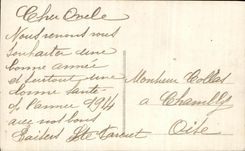 Cher Oncle
Nous venons vous
souhaiter une
bonne année
et surtout une
bonne santé
de l'année 1914
avec nos bons
Baisers
Monsieur Collas
a Chambly
Oise